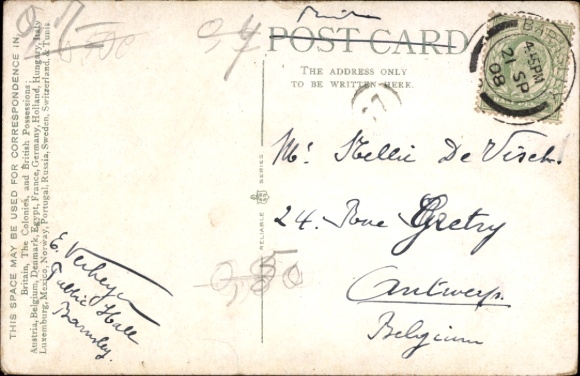 THIS SPACE MAY BE USED FOR CORRESPONDENCE IN
Britain, The Colonies, and British Possessions;
Austria, Belgium, Denmark, Egypt, France, Germany, Holland, Hungary, Italy
Luxemburg, Mexico, Norway, Portugal, Russia, Sweden, Switzerland, & Tunis.
E. Verheyen
Public Hall
Barnsley.
RELIABLE SERIES
POST CARD
THE ADDRESS ONLY
TO BE WRITTEN HERE.
BARNSLEY
4-5PM
21 SP
08
27
Mr. Nellie De Visch.
24. Rue Gretry
Antwerp.
Belgium